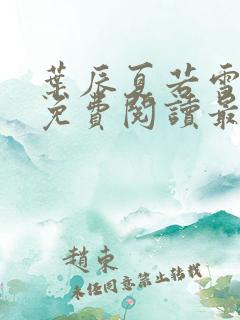 葉辰夏若雪
免費閱讀最
趙東
未經同意禁止轉載